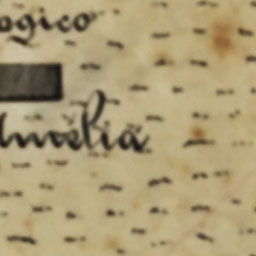 ogico
Amelia